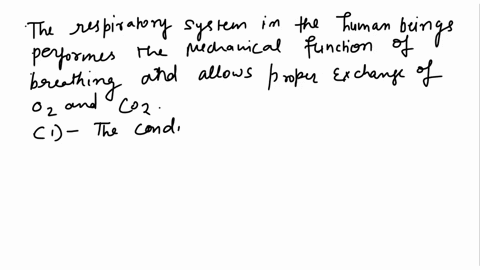 The respiratory system in the human beings
performes the mechanical function of
breathing and allows proper exchange of
O2 and CO2.
(i)- The condi